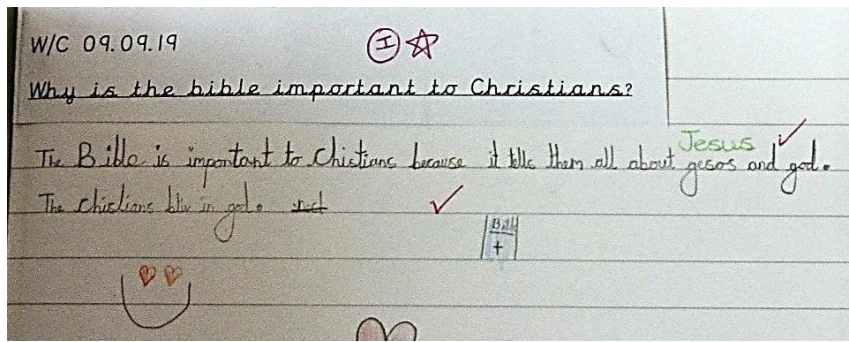 W/C 09.09.19
I
Why is the bible important to Christians?
Jesus
The Bible is important to Chistians because it tells them all about gesos and god.
The chistians bliv in god.